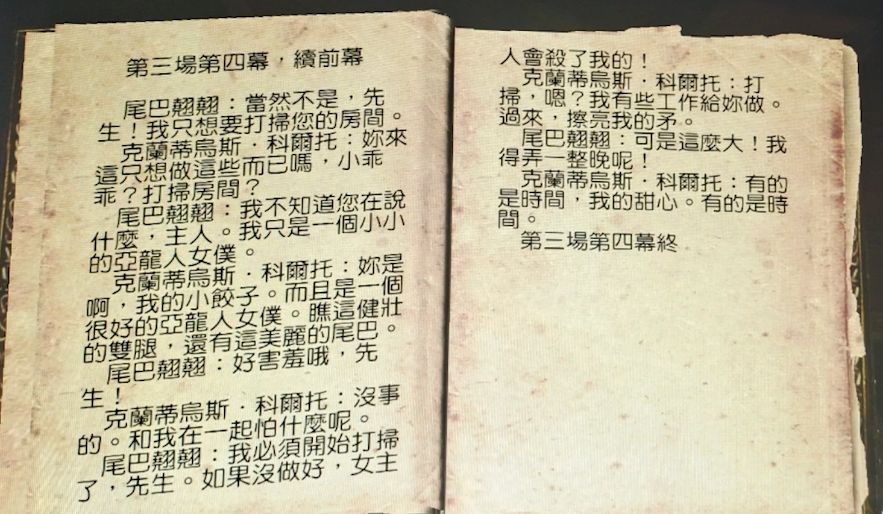 第三場第四幕，續前幕
尾巴翹翹：當然不是，先
生！我只想要打掃您的房間。
克蘭蒂烏斯．科爾托：妳來
這只想做這些而已嗎，小乖
乖？打掃房間？
尾巴翹翹：我不知道您在說
什麼，主人。我只是一個小小
的亞龍人女僕。
克蘭蒂烏斯．科爾托：妳是
啊，我的小餃子。而且是一個
很好的亞龍人女僕。瞧這健壯
的雙腿，還有這美麗的尾巴。
尾巴翹翹：好害羞哦，先
生！
克蘭蒂烏斯．科爾托：沒事
的。和我在一起怕什麼呢。
尾巴翹翹：我必須開始打掃
了，先生。如果沒做好，女主
人會殺了我的！
克蘭蒂烏斯．科爾托：打
掃，嗯？我有些工作給妳做。
過來，擦亮我的矛。
尾巴翹翹：可是這麼大！我
得弄一整晚呢！
克蘭蒂烏斯．科爾托：有的
是時間，我的甜心。有的是時
間。
第三場第四幕終